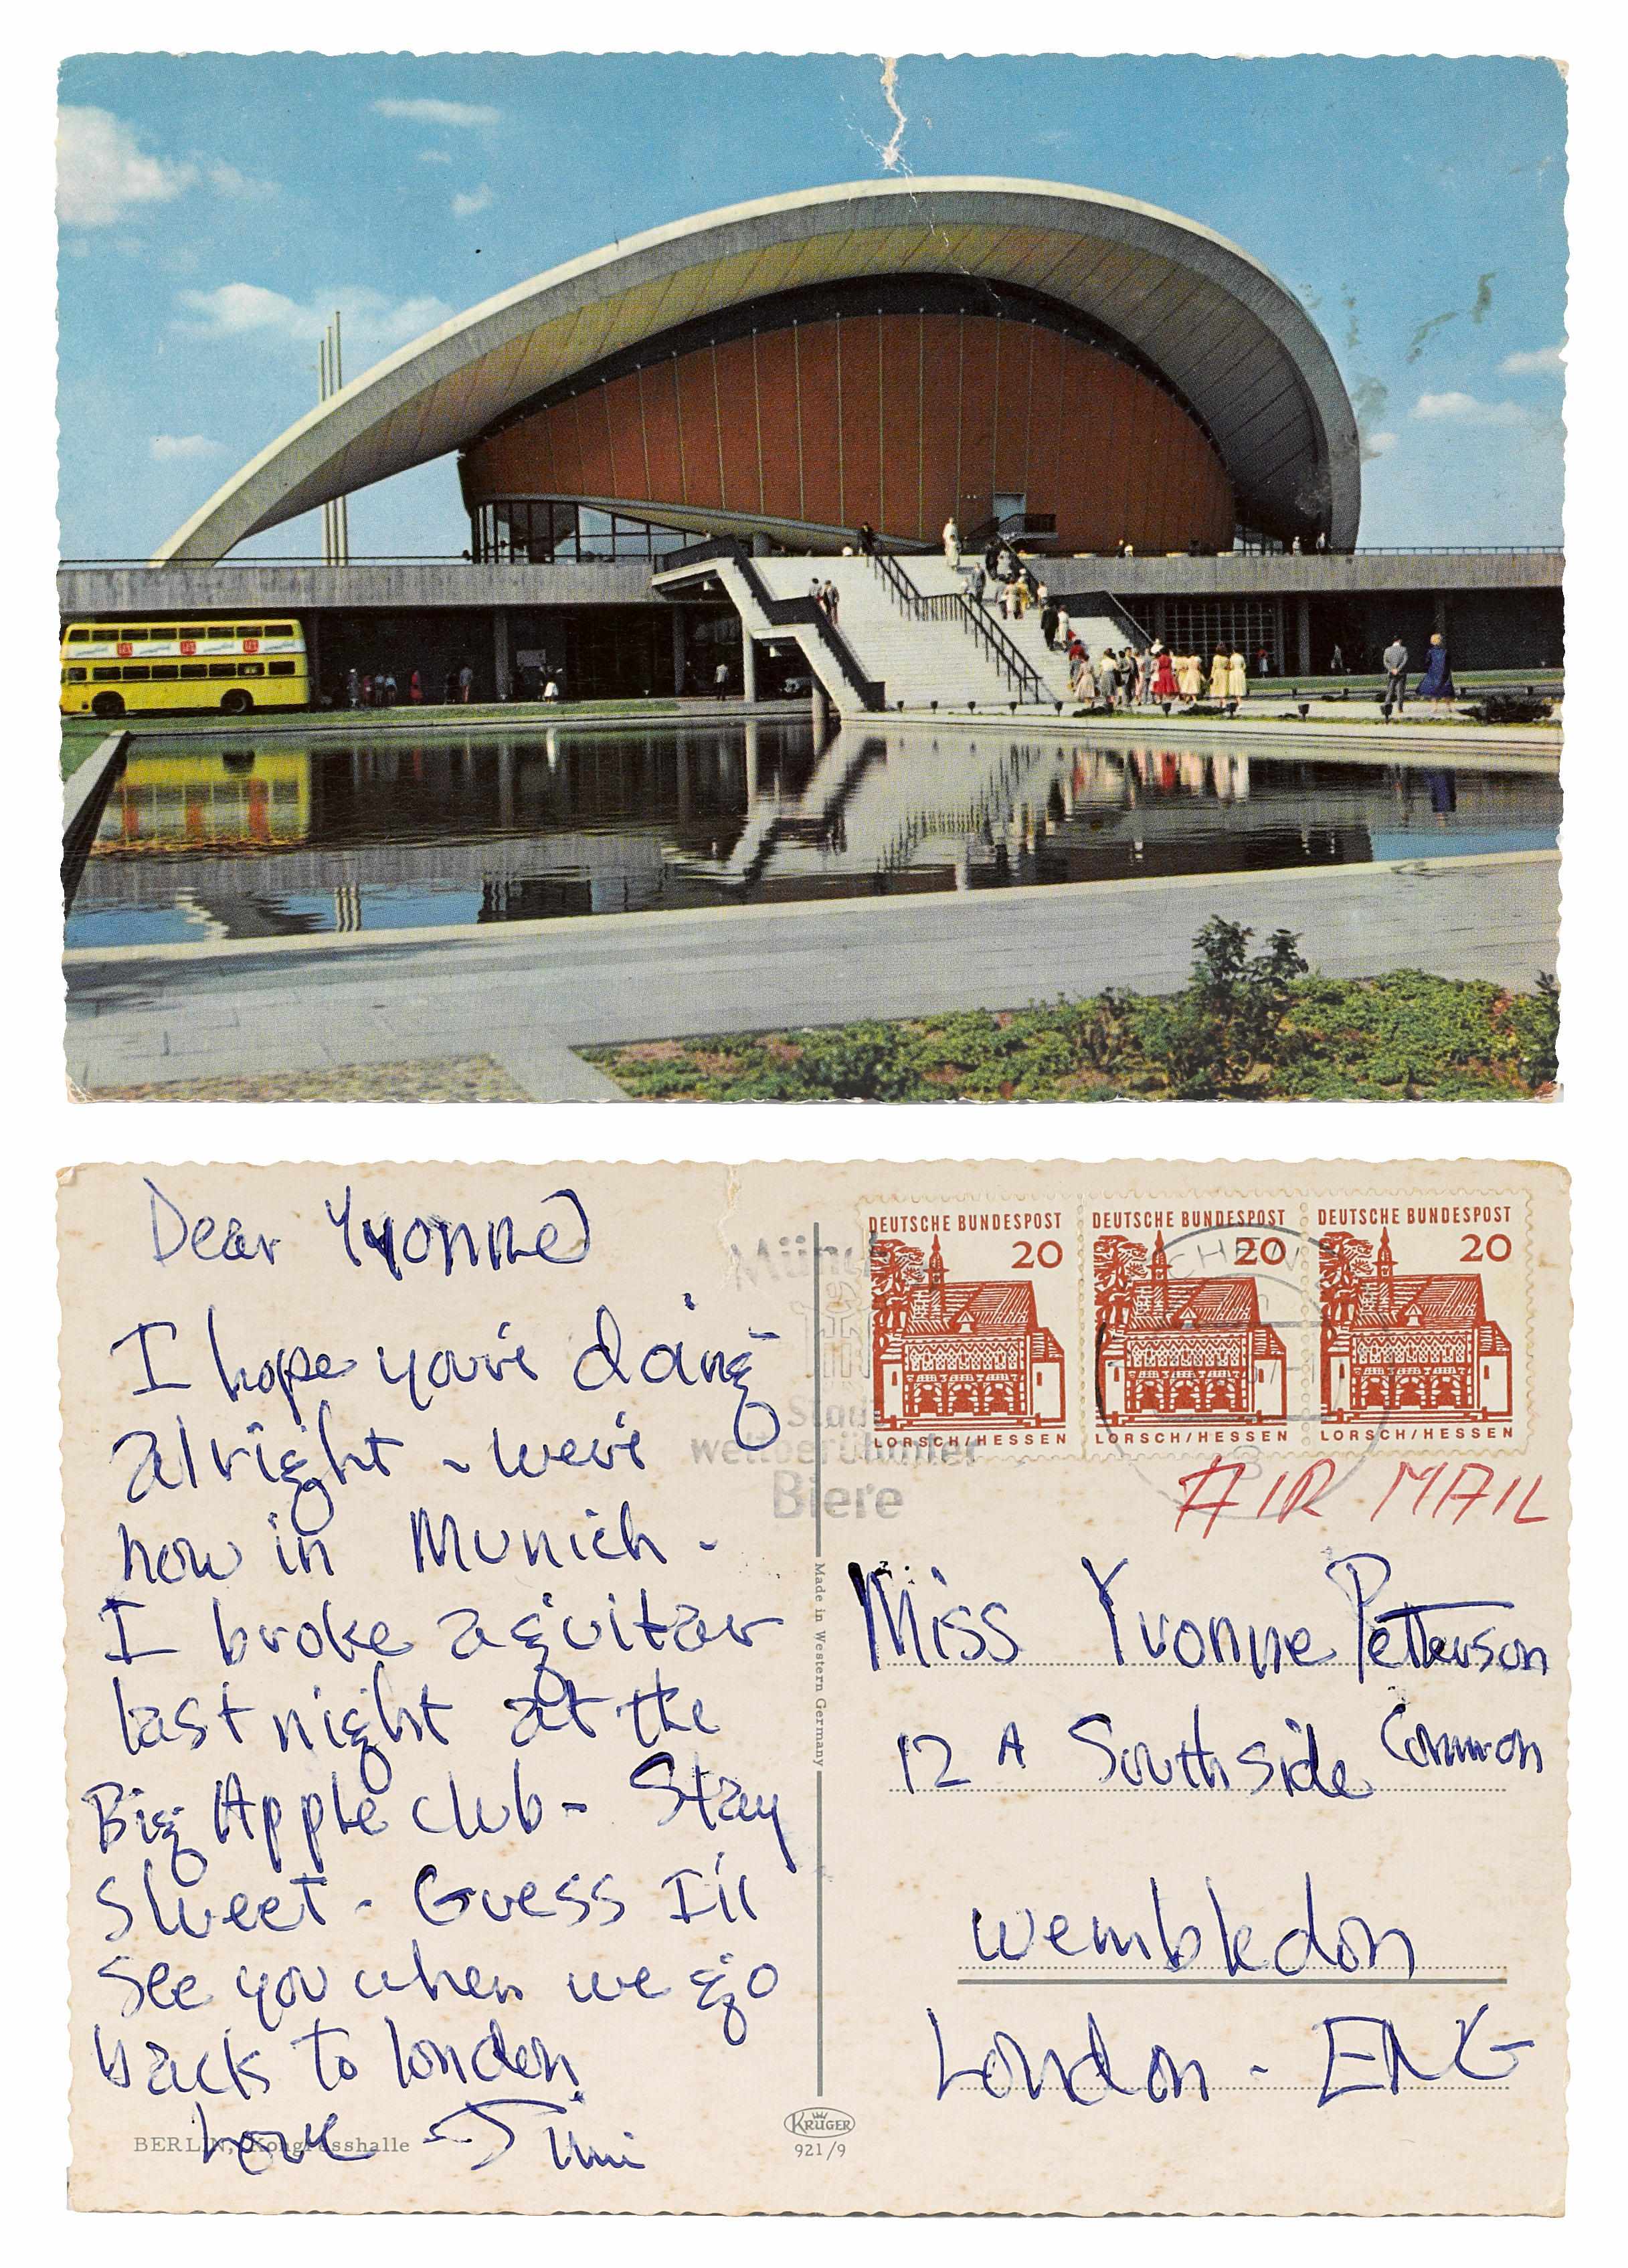 Dear Yvonne
I hope you're doing
alright - we're
now in Munich -
I broke a guitar
last night at the
Big Apple club - Stay
Sweet - Guess I'll
See you when we go
back to london.
Love - Jimi
BERLIN, Kongresshalle
Münch
Stadt
weltberühmter
Biere
DEUTSCHE BUNDESPOST
20
LORSCH/HESSEN
DEUTSCHE BUNDESPOST
20
LORSCH/HESSEN
DEUTSCHE BUNDESPOST
20
LORSCH/HESSEN
CHEN
AIR MAIL
Made in Western Germany
KRÜGER
921/9
Miss Yvonne Petterson
12 A Southside Common
Wembledon
London - ENG